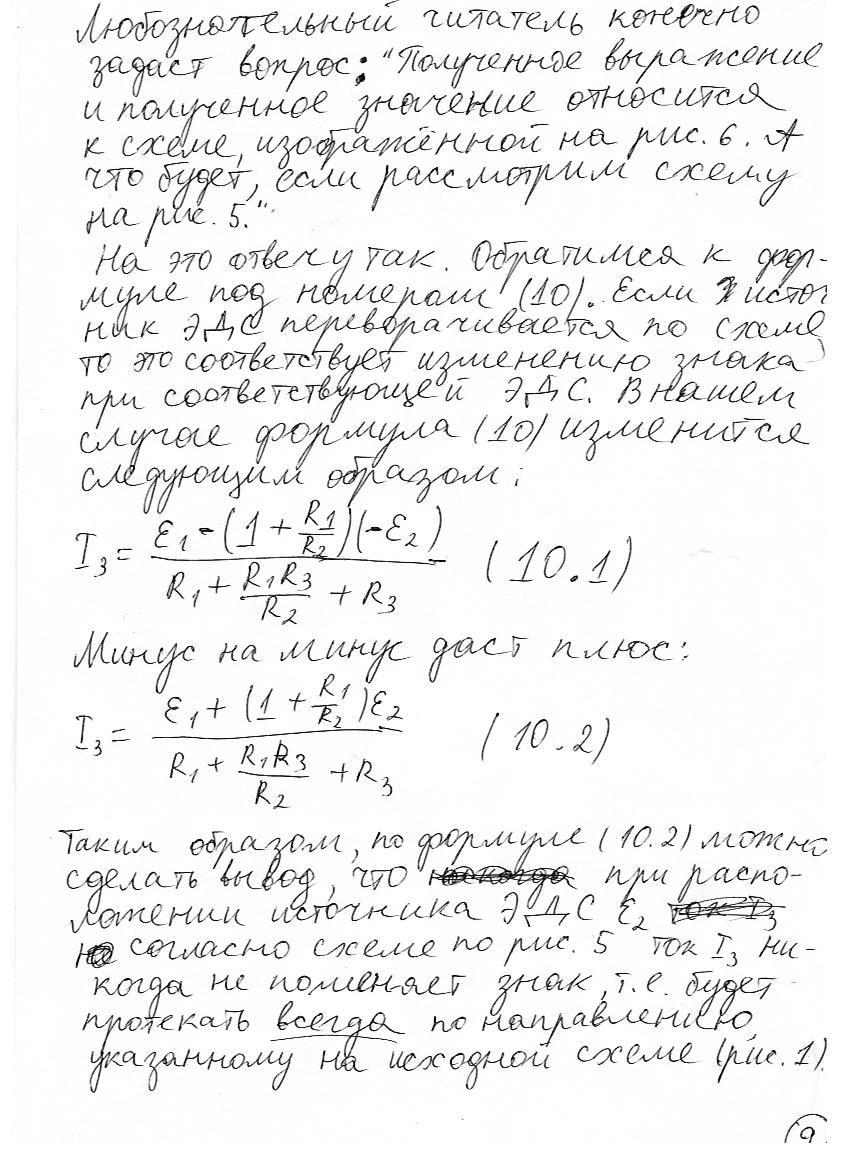 Любознательный читатель конечно
задаст вопрос: "Полученное выражение
и полученное значение относится
к схеме, изображённой на рис. 6. А
что будет, если рассмотрим схему
на рис. 5."
На это отвечу так. Обратимся к фор-
муле под номером (10). Если источ
ник ЭДС переворачивается по схеме,
то это соответствует изменению знака
при соответствующей ЭДС. В нашем
случае формула (10) изменится
следующим образом:
I₃ = (ε₁ - (1 + R1/R₂)(-ε₂)) / (R₁ + R₁R₃/R₂ + R₃) (10.1)
Минус на минус даст плюс:
I₃ = (ε₁ + (1 + R1/R₂)ε₂) / (R₁ + R₁R₃/R₂ + R₃) (10.2)
Таким образом, по формуле (10.2) можно
сделать вывод, что при распо-
ложении источника ЭДС ε₂
согласно схеме по рис. 5 ток I₃ ни-
когда не поменяет знак, т.е. будет
протекать всегда по направлению,
указанному на исходной схеме (рис. 1).
9